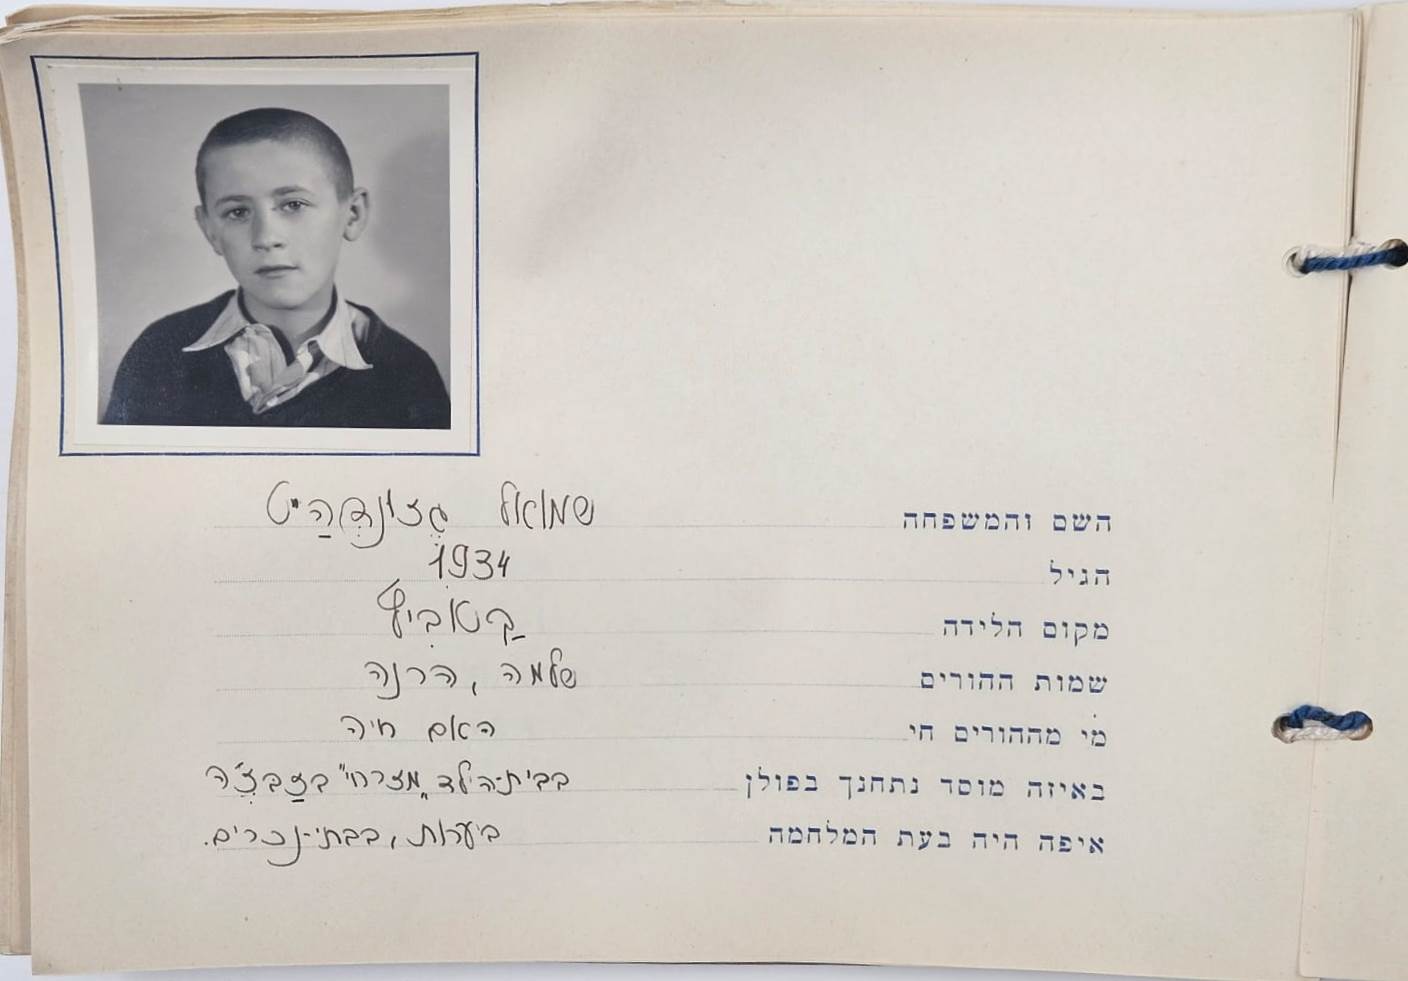 השם והמשפחה שמואל גֶזונְדְהַייט
הגיל 1934
מקום הלידה קַטאבִיץ
שמות ההורים שלמה, הרנה
מי מההורים חי האם חיה
באיזה מוסד נתחנך בפולן בבית-הילד „מזרחי" בזַבְצֶ'ה
איפה היה בעת המלחמה ביערות, בבתי-נכרים.